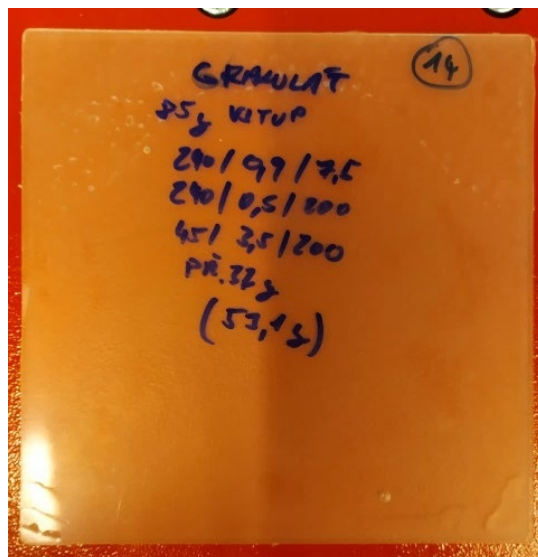 GRANULÁT
14
85g VSTUP
240/ 0,9 / 7,5
240/ 0,5/ 200
45/ 3,5/200
PŘ. 32 g
(53,1 g)